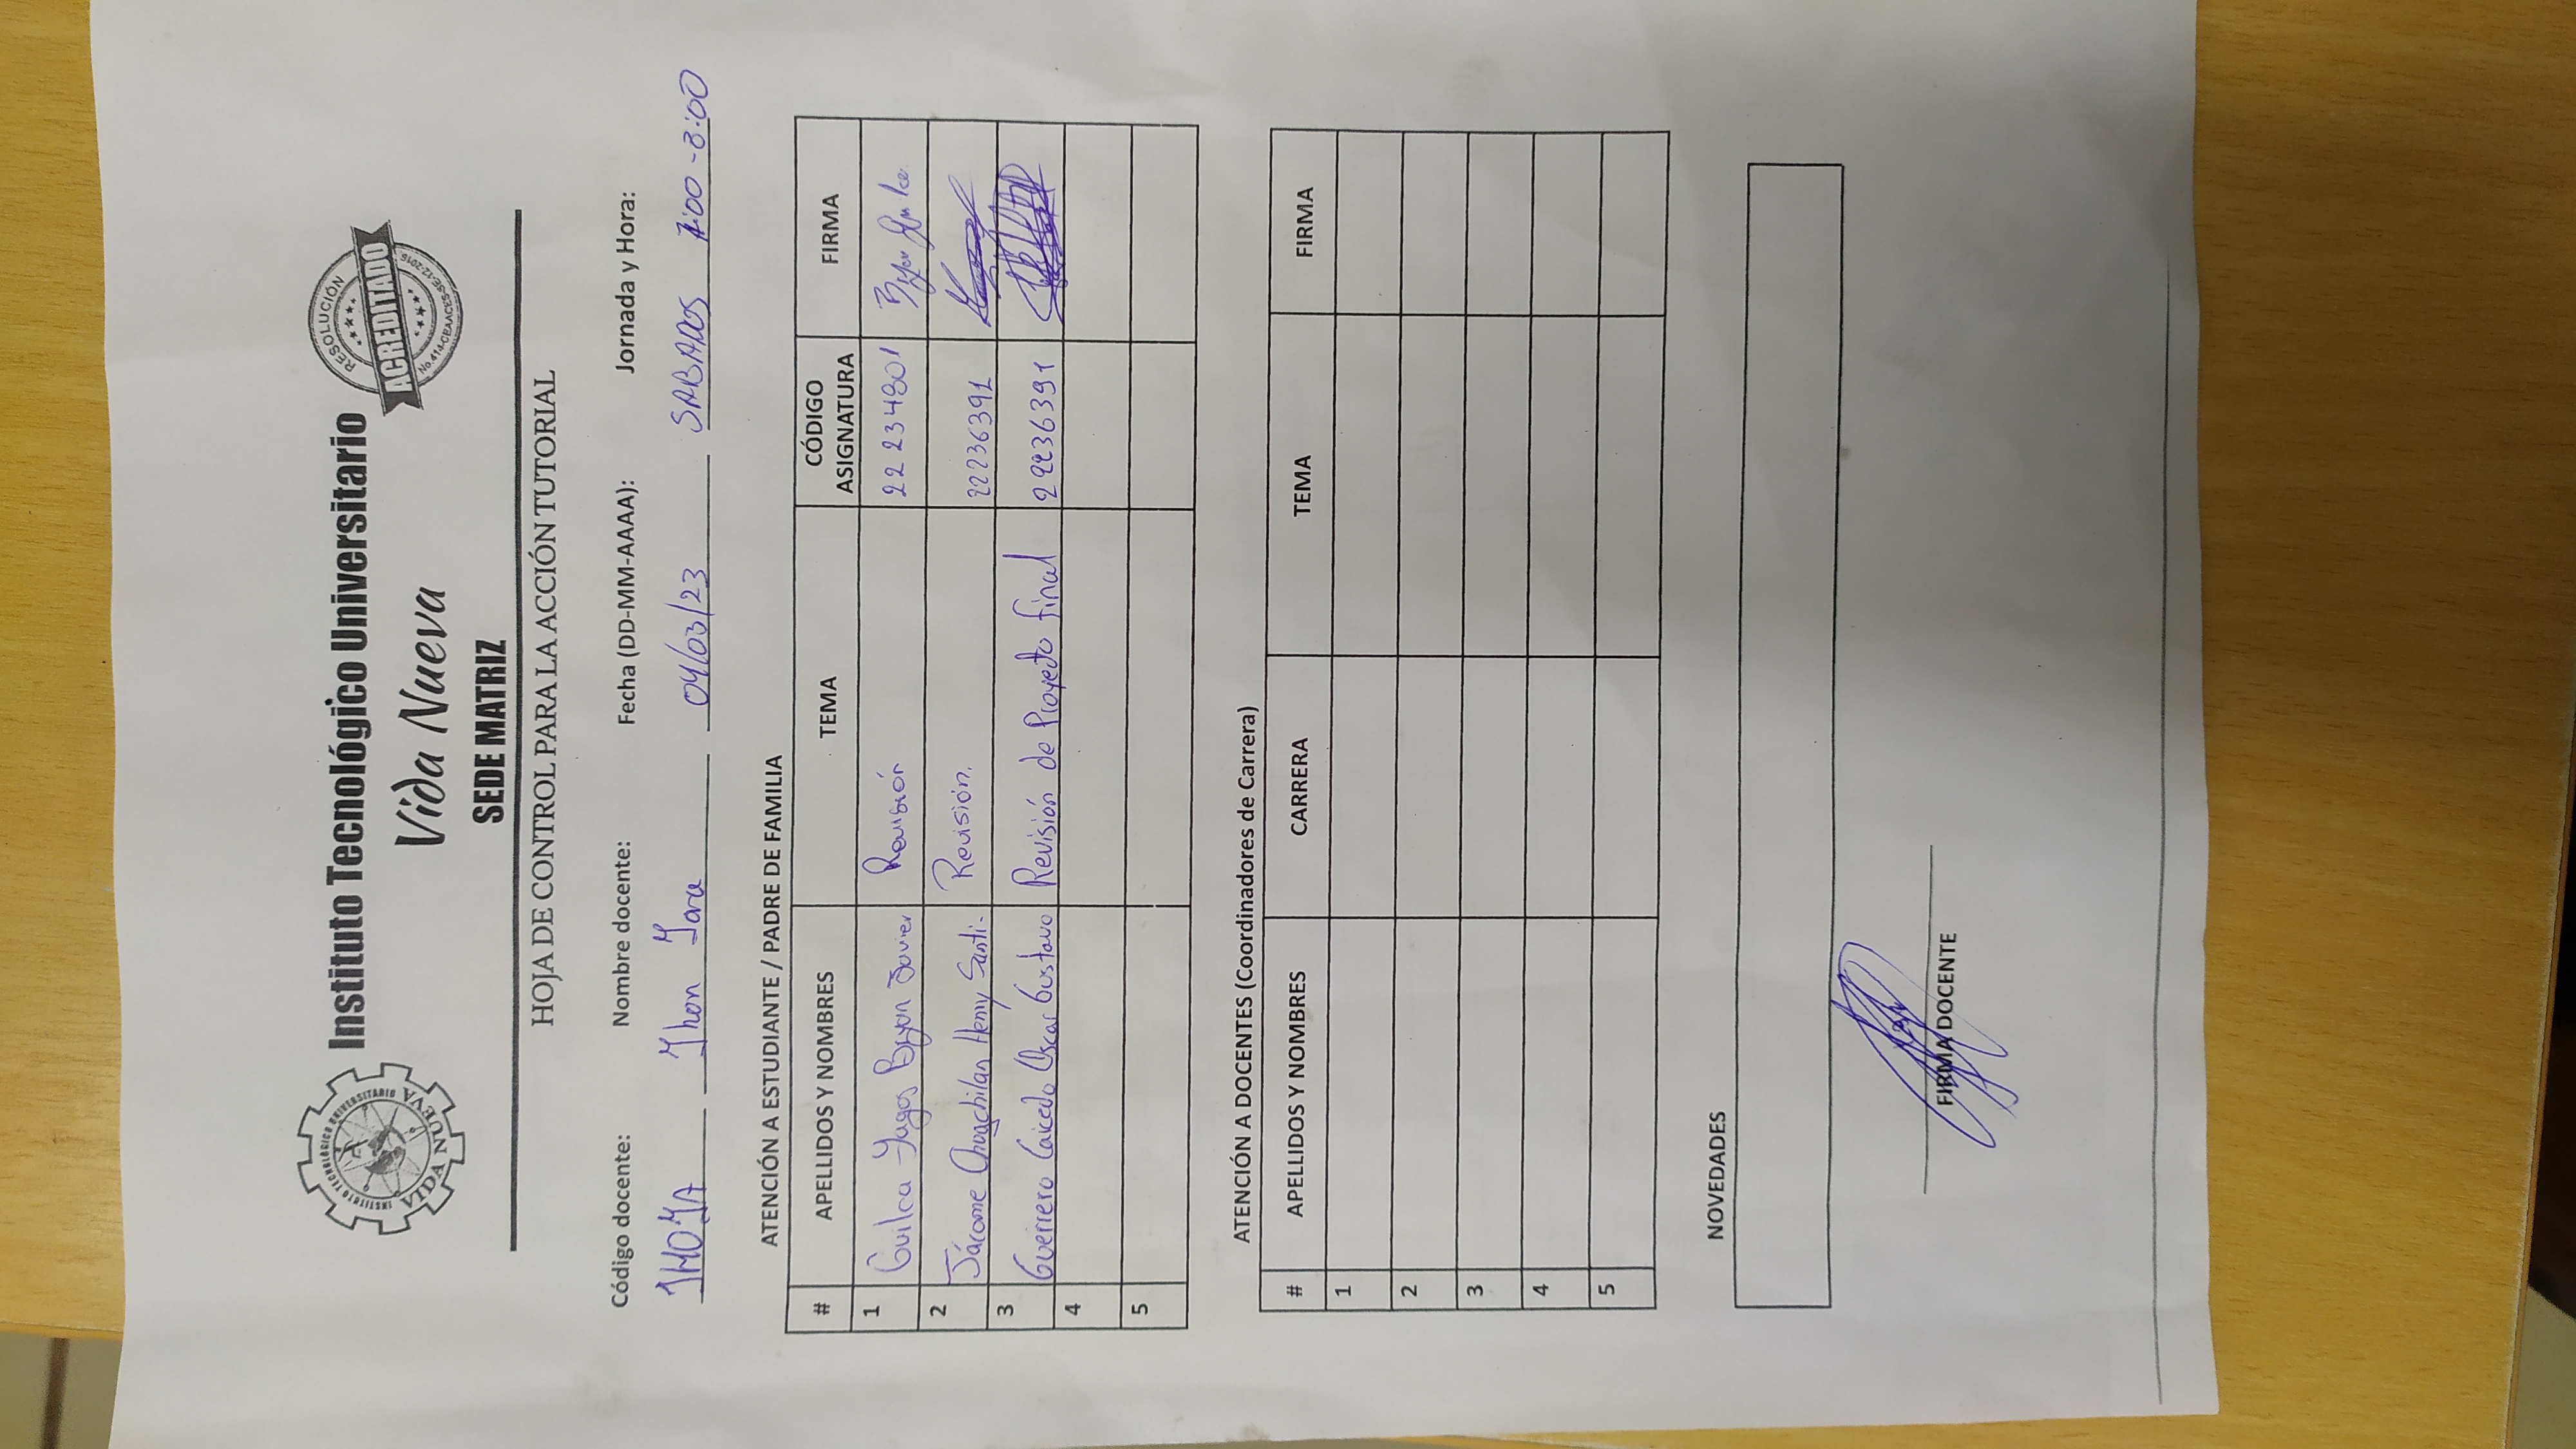 INSTITUTO TECNOLÓGICO UNIVERSITARIO
VIDA NUEVA
Instituto Tecnológico Universitario
Vida Nueva
SEDE MATRIZ
RESOLUCIÓN
ACREDITADO
No.414-CEAACES-SE-12-2016
HOJA DE CONTROL PARA LA ACCIÓN TUTORIAL
Código docente: Nombre docente: Fecha (DD-MM-AAAA): Jornada y Hora:
JHOJA Jhon Jara 04/03/23 SABADOS 7:00 -8:00
ATENCIÓN A ESTUDIANTE / PADRE DE FAMILIA
# APELLIDOS Y NOMBRES TEMA CÓDIGO ASIGNATURA FIRMA
1 Guilca Yagos Bryan Javier Revisión 22234801
2 Jácome Chugchilan Henry Santi- Revisión. 22236391
3 Guerrero Caicedo Oscar Gustavo Revisión de Proyecto final 22236391
4
5
ATENCIÓN A DOCENTES (Coordinadores de Carrera)
# APELLIDOS Y NOMBRES CARRERA TEMA FIRMA
1
2
3
4
5
NOVEDADES
FIRMA DOCENTE